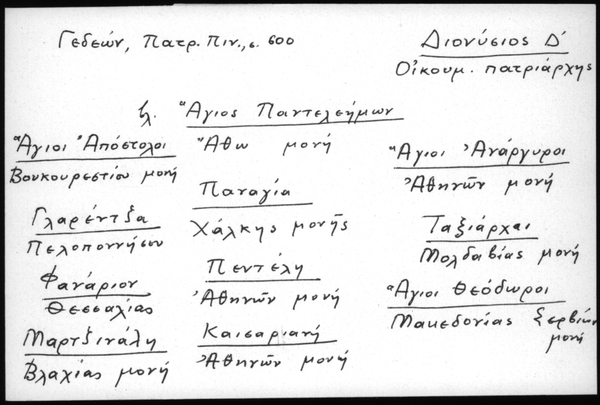 Γεδεών, Πατρ. Πιν., σ. 600
Διονύσιος Δ΄
Οἰκουμ. πατριάρχης
βλ. Ἅγιος Παντελεήμων
Ἄθω μονή
Ἅγιοι Ἀπόστολοι
Βουκουρεστίου μονή
Ἅγιοι Ἀνάργυροι
Ἀθηνῶν μονή
Παναγία
Χάλκης μονῆς
Γλαρέντζα
Πελοποννήσου
Ταξιάρχαι
Μολδαβίας μονή
Πεντέλη
Ἀθηνῶν μονή
Φανάριον
Θεσσαλίας
Ἅγιοι Θεόδωροι
Μακεδονίας Σερβίων
μονή
Μαρτζινάλη
Βλαχίας μονή
Καισαριανή
Ἀθηνῶν μονή